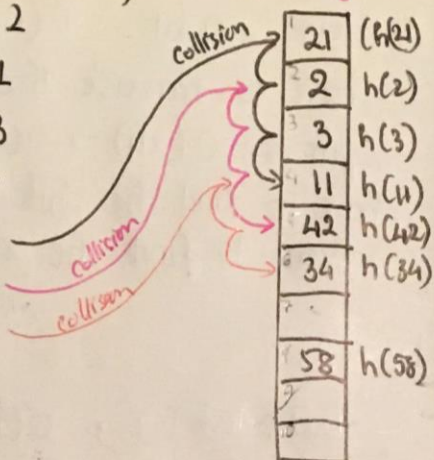 2
1
3
collision
collision
collisan
1 21 (h(21)
2 2 h(2)
3 3 h(3)
4 11 h(11)
5 42 h(42)
6 34 h(34)
7
8 58 h(58)
9
10